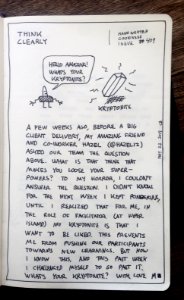 THINK
CLEARLY
HAND WRITTEN
GOODNESS
ISSUE #409
HELLO AMAZING!
WHAT'S YOUR
KRYPTONITE?
KRYPTONITE
A FEW WEEKS AGO, BEFORE A BIG
CLIENT DELIVERY, MY AMAZING FRIEND
AND CO-WORKER HAZEL (@HAZELTZ)
ASKED OUR TEAM THE QUESTION
ABOVE. WHAT IS THAT THING THAT
MAKES YOU LOOSE YOUR SUPER-
POWERS? TO MY HORROR, I COULDN'T
ANSWER THE QUESTION. I DIDN'T KNOW.
FOR THE NEXT WEEK I KEPT PONDERING,
UNTIL I REALIZED THAT FOR ME, IN
THE ROLE OF FACILITATOR (AT WORK
ISLAND) MY KRYPTONITE IS THAT I
WANT TO BE LIKED. THIS PREVENTS
ME FROM PUSHING OUR PARTICIPANTS
TOWARDS NEW LEARNINGS. BUT NOW
I KNOW THIS, AND THIS PAST WEEK
I CHALLENGED MYSELF TO GO PAST IT.
WHAT'S YOUR KRYPTONITE? WITH LOVE MB